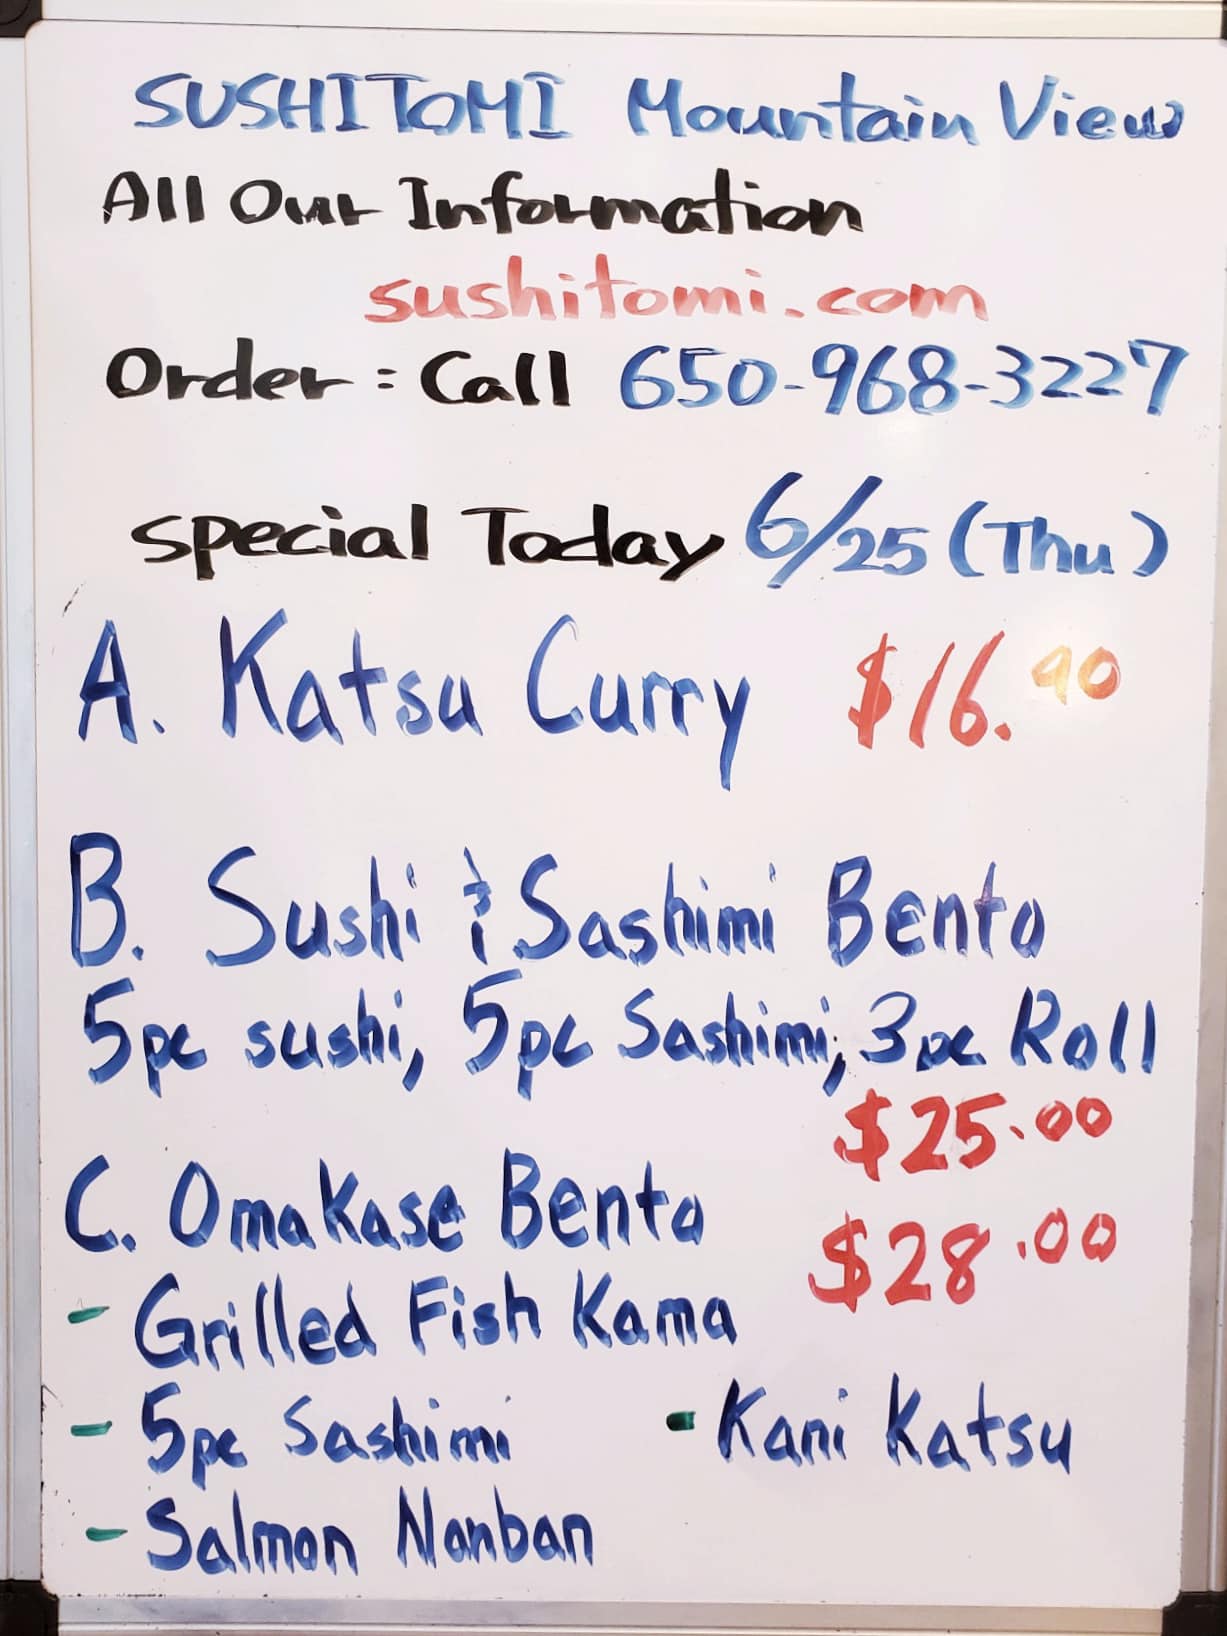 SUSHITOMI Mountain View
All Our Information
sushitomi.com
Order : Call 650-968-3227
Special Today 6/25 (Thu)
A. Katsu Curry $16.90
B. Sushi & Sashimi Bento
5pc sushi, 5pc Sashimi, 3pc Roll
$25.00
C. Omakase Bento $28.00
- Grilled Fish Kama
- 5pc Sashimi - Kani Katsu
- Salmon Nanban